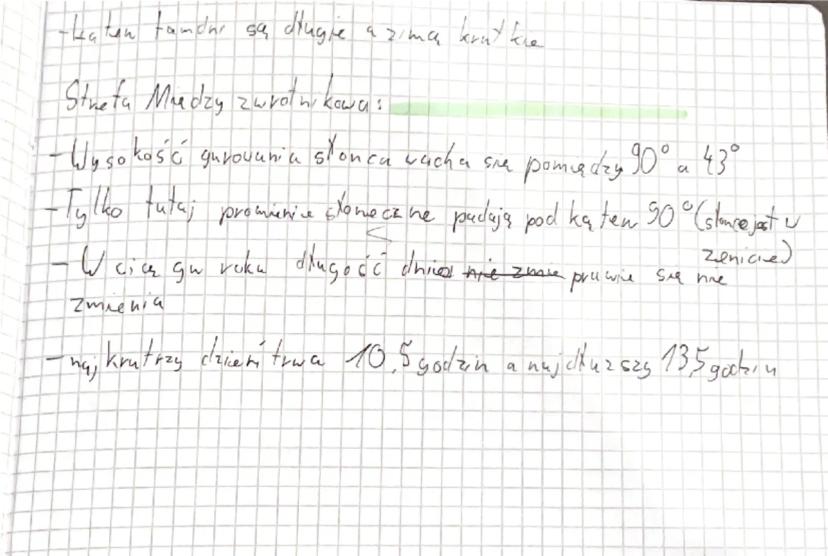 -Latem tamdni są długie a zimą krutkie
Strefa Miedzy zwrotnikowa:
-Wysokość gurowania słonca wacha się pomiędzy 90° a 43°
-Tylko tutaj promienie słoneczne padają pod kątem 90° (słonce jest w
zenicie)
- W ciąg gu roku długość dnia nie zmie prawie się nie
zmienia
-najkrutrzy dzień trwa 10,5 godzin a najdłuzszy 13,5 godzin